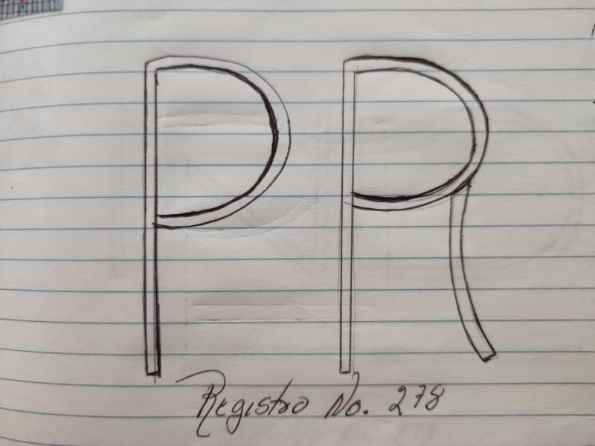 PR
Registro No. 278